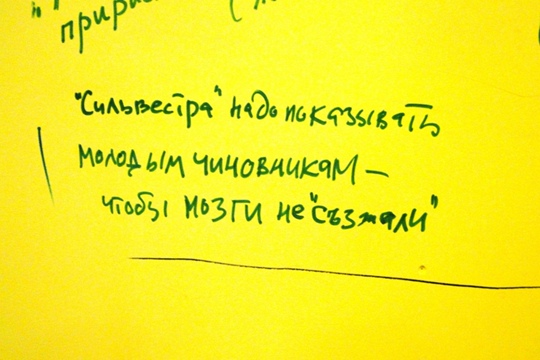 "Сильвестра" надо показывать
молодым чиновникам –
чтобы мозги не "съзжали"